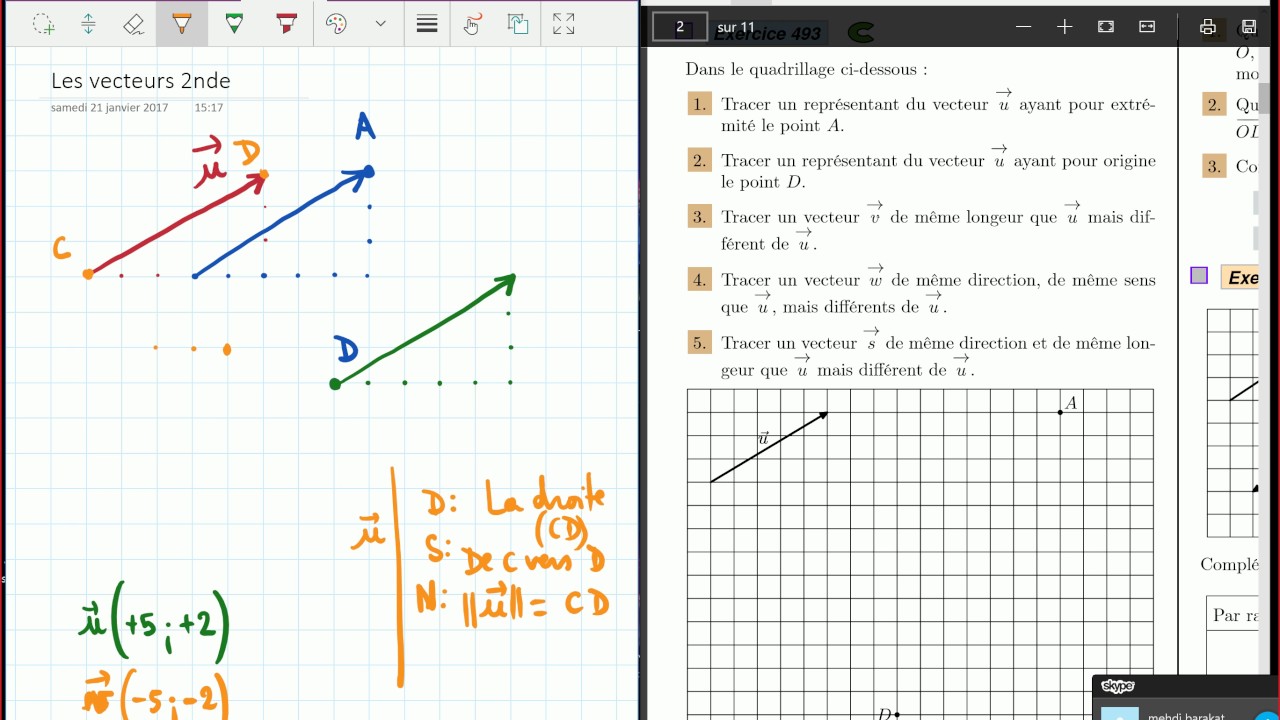 Les vecteurs 2nde
samedi 21 janvier 2017 15:17
A
u
D
C
D
u
D: La droite
(CD)
S: De C vers D
N: ||u|| = CD
u(+5;+2)
v(-5;-2)
2 sur 11
Exercice 493
Dans le quadrillage ci-dessous :
1. Tracer un représentant du vecteur u ayant pour extré-
mité le point A.
2. Tracer un représentant du vecteur u ayant pour origine
le point D.
3. Tracer un vecteur v de même longeur que u mais dif-
férent de u.
4. Tracer un vecteur w de même direction, de même sens
que u, mais différents de u.
5. Tracer un vecteur s de même direction et de même lon-
geur que u mais différent de u.
u
A
D
O,
mo
2. Qu
OD
3. Co
Exe
Complé
Par ra
skype
mehdi barakat